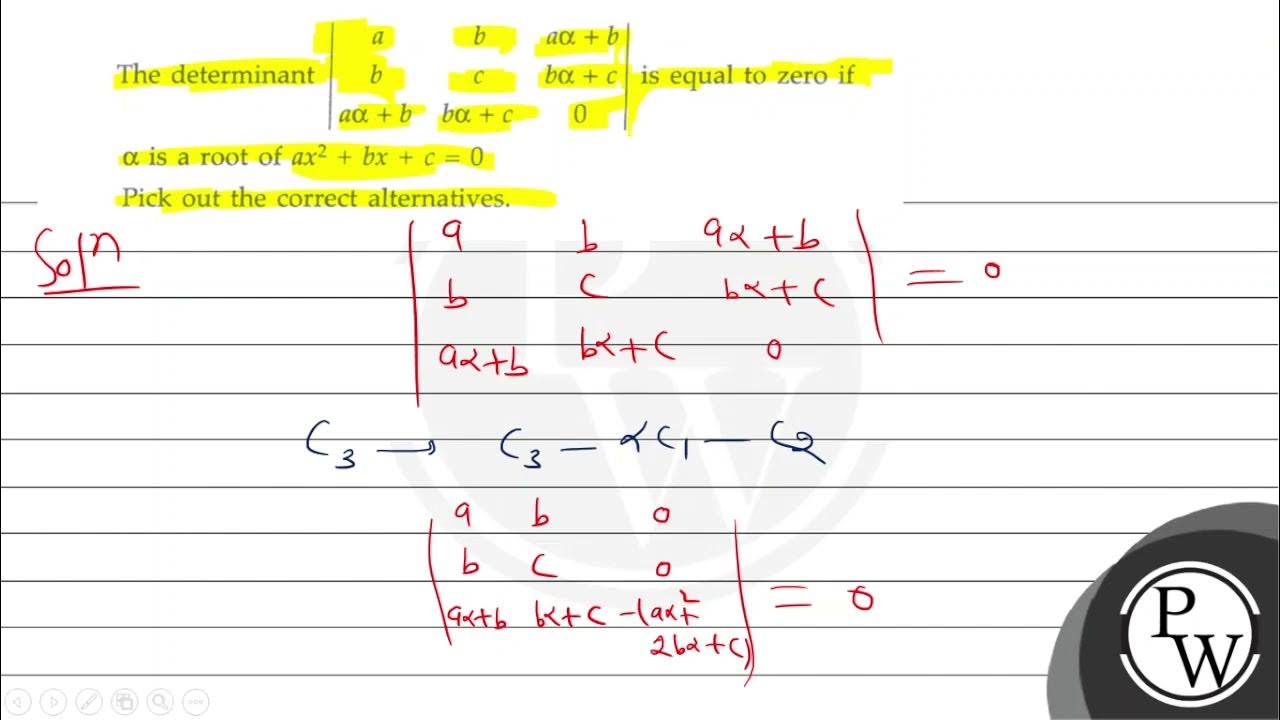 a b aα + b
The determinant b c bα + c is equal to zero if
aα + b bα + c 0
α is a root of ax² + bx + c = 0
Pick out the correct alternatives.
Soln
a b aα + b
b c bα + c = 0
aα + b bα + c 0
C₃ → C₃ – αC₁ – C₂
a b 0
b c 0
aα+b bα+c –(aα²+ = 0
2bα+c)
P
W
P
W